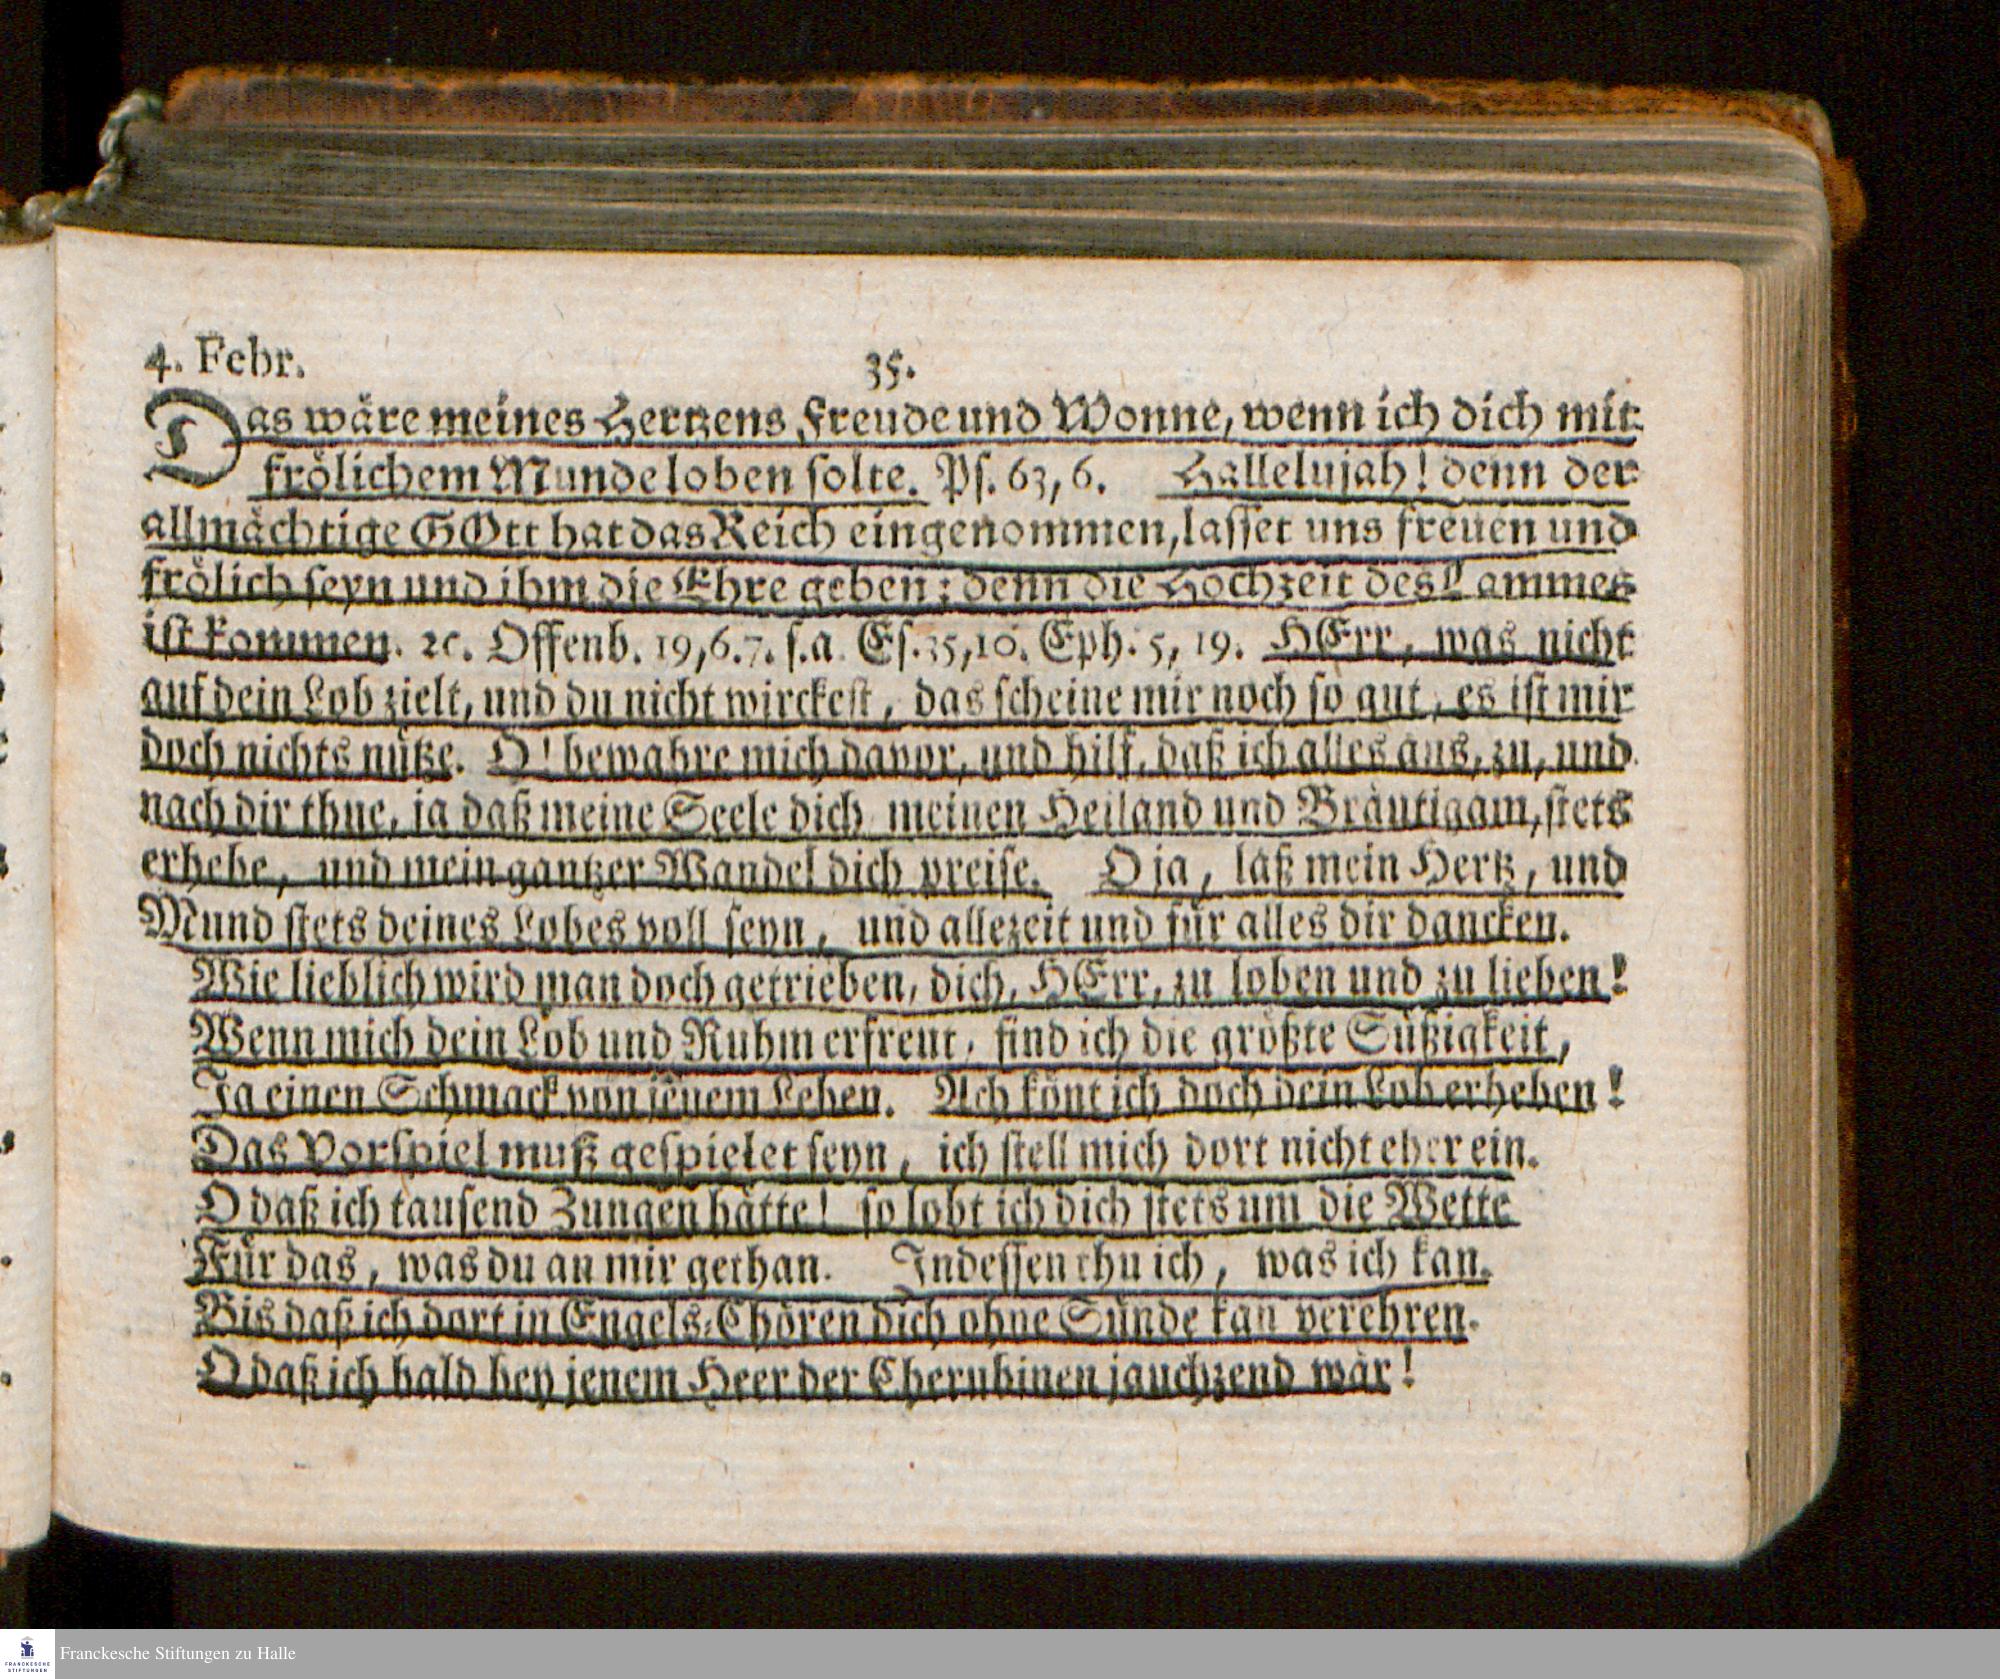 4. Febr.
35.
Das wäre meines Hertzens Freude und Wonne, wenn ich dich mit
frölichem Munde loben solte. Ps. 63, 6. Hallelujah! denn der
allmächtige GOtt hat das Reich eingenommen, lasset uns freuen und
frölich seyn und ihm die Ehre geben; denn die Hochzeit des Lammes
ist kommen. ꝛc. Offenb. 19, 6. 7. s. a. Es. 35, 10. Eph. 5, 19. HErr, was nicht
auf dein Lob zielt, und du nicht wirckest, das scheine mir noch so gut, es ist mir
doch nichts nütze. O! bewahre mich davor, und hilf, daß ich alles aus, zu, und
nach dir thue, ja daß meine Seele dich meinen Heiland und Bräutigam, stets
erhebe, und mein gantzer Wandel dich preise. O ja, laß mein Hertz, und
Mund stets deines Lobes voll seyn, und allezeit und für alles dir dancken.
Wie lieblich wird man doch getrieben, dich, HErr, zu loben und zu lieben!
Wenn mich dein Lob und Ruhm erfreut, find ich die größte Süßigkeit,
Ja einen Schmack von jenem Leben. Ach könt ich doch dein Lob erheben!
Das Vorspiel muß gespielet seyn, ich stell mich dort nicht eher ein.
O daß ich tausend Zungen hätte! so lobt ich dich stets um die Wette
Für das, was du an mir gethan. Indessen thu ich, was ich kan.
Bis daß ich dort in Engels-Chören dich ohne Sünde kan verehren.
O daß ich bald bey jenem Heer der Cherubinen jauchzend wär!
FRANCKESCHE
STIFTUNGEN
Franckesche Stiftungen zu Halle